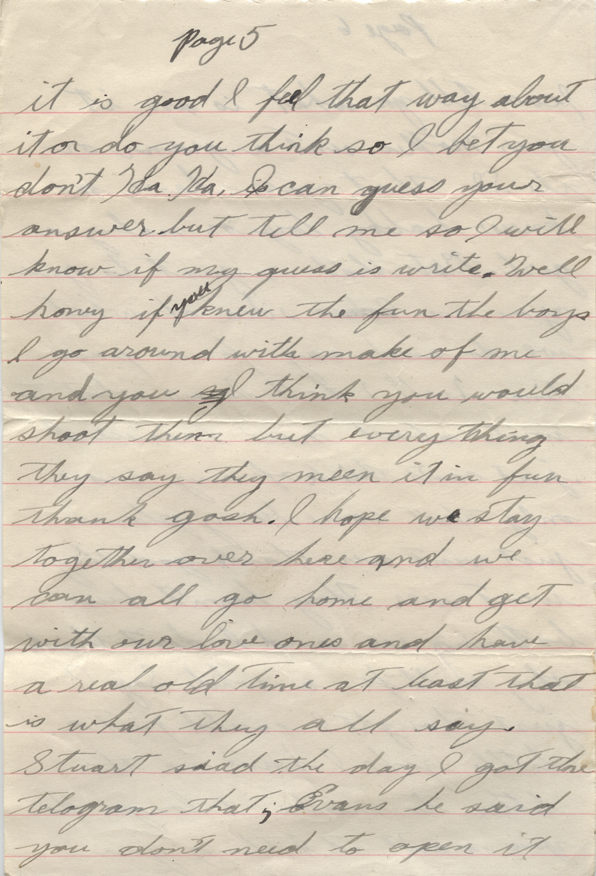 Page 5
it is good I feel that way about
it or do you think so I bet you
don't Ha, Ha, I can guess your
answer but tell me so I will
know if my guess is write. Well
honey if you knew the fun the boys
I go around with make of me
and you I think you would
shoot them but everything
they say they meen it in fun
thank gosh. I hope we stay
together over here and we
can all go home and get
with our love ones and have
a real old time at least that
is what they all say.
Stuart siad the day I got the
telogram that; Evans he said
you don't need to open it